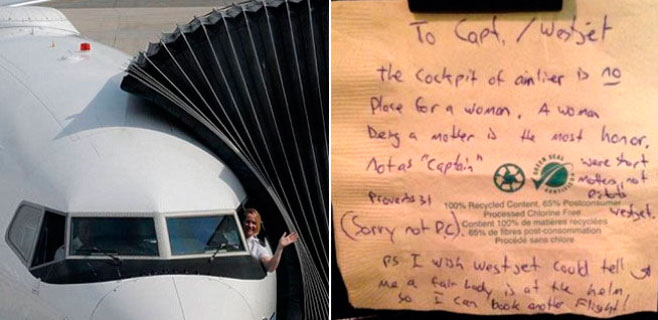 To Capt. / Westjet
the cockpit of airliner is no
Place for a woman. A woman
being a mother is the most honor.
Not as "Captain"
were short
mothers, not
pilots
westjet.
Proverbs 31
GREEN SEAL
100% Recycled Content, 65% Postconsumer
Processed Chlorine Free
Content 100% de matières recyclées
65% de fibres post-consommation
Procédé sans chlore
(Sorry not P.C.)
PS I wish westjet could tell
me a fair lady is at the helm
so I can book another flight!